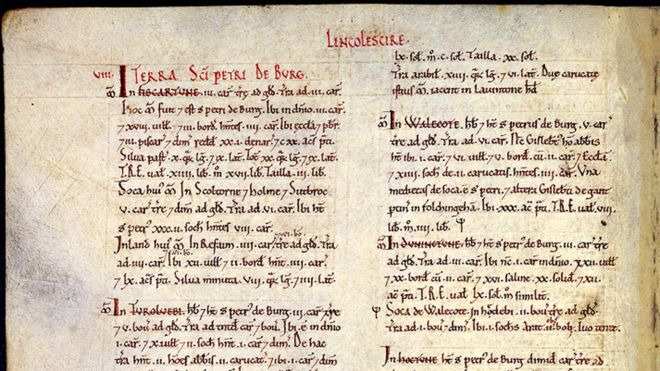 LINCOLESCIRE.
VIII. TERRA SCI PETRI DE BURG.
ꝏ In FISCARTUNE. .iii. car̄ tr̄e ad gld̄. Tr̄a ad .iii. car̄.
Hoc ꝏ fuit 7 est S petri de Burg. Ibi in dnio .iii. car̄
7 xxviii. uill̄i 7 .ii. bord̄. hn̄tes .iii. car̄. Ibi ecclā 7 pb̄r
7 .iii. piscar̄ 7 dim̄ redd̄ xx.i. denar̄. 7 cxx. ac̄s p̄ti.
T.R.E. ual̄ .xiii. lib̄. m̊ xvii. lib̄. Tailla .iii. lib̄.
Soca hui' ꝏ In Scoltorne 7 holme 7 Sutbroc
.v. car̄ tr̄e 7 dim̄ ad gld̄. Tr̄a ad .vi. car̄. Ibi ht̄
S petr' xxx.ii. soch̄s hn̄tes .viii. car̄.
Inland hui' ꝏ In Refaim .iiii. car̄ tr̄e ad gld̄. Tr̄a
ad .iii. car̄. Ibi xii. uill̄i 7 .ii. bord̄. hn̄t .iii. car̄.
7 lx. ac̄s p̄ti. Silua minuta .viii. qr̄ lḡ. 7 .iii. lat̄.
ꝏ In TUROLUEBI. hb̄ 7 ht̄ S petr' de Burg .iii. car̄ tr̄e
7 .ii. bou̇ ad gld̄. Tr̄a ad totid̄ car̄ 7 bou̇. Ibi ē in dn̄io
.i. car̄ 7 .x. uill̄i 7 .ii. soch̄s cū .iii. car̄ 7 dim̄. De hac
tr̄a hn̄t .ii. hōes abb̄is .ii. carucat̄. 7 ibi .i. car̄ 7 dim̄
lx. sol̄. m̊ .c. sol̄. Tailla .xx. sol̄.
Tr̄a arabil̄ .xiiii. qr̄ lḡ 7 .vi. lat̄. Duę carucatę
istius ꝏ. iacent in Lauintone hd̄
ꝏ In WALECOTE. hb̄ 7 ht̄ S petrus de Burg .v. car̄
tr̄e ad gld̄. Tr̄a ad .vi. car̄. Ñc Gislebt̄ hō abbis
ht̄ ibi .i. car̄ 7 .vi. uill̄. 7 v. bord̄ cū .ii. car̄. 7 Ecclā
7 xiii. soch̄s de .ii. carucatis. hn̄tes .iii. car̄. Una
medietas de soca. ē S petri. 7 altera Gislebti de gant
ptin̄ in folchingehā. Ibi xxx. ac̄ p̄ti. T.R.E. ual̄ .viii.
lib̄. m̊ .iiii. lib̄.
ꝏ In DUNNINCTUNE. hb̄ 7 ht̄ S petr' de Burg .iii. car̄ tr̄e
ad gld̄. Tr̄a ad .ii. car̄. Ibi .i. car̄ in dn̄io. 7 xx. uill̄i
7 x. bord̄ cū .ii. car̄. 7 xvi. salinę .xx. solid̄. 7 xx.
ac̄ p̄ti. T.R.E. ual̄ lx. sol̄. m̊ similit̄.
Soca de Walecote. In hōdebi .ii. bou̇ tr̄e ad gld̄.
In HOCTUNE ht̄ S petr' de Burg dimid̄ car̄ tr̄e